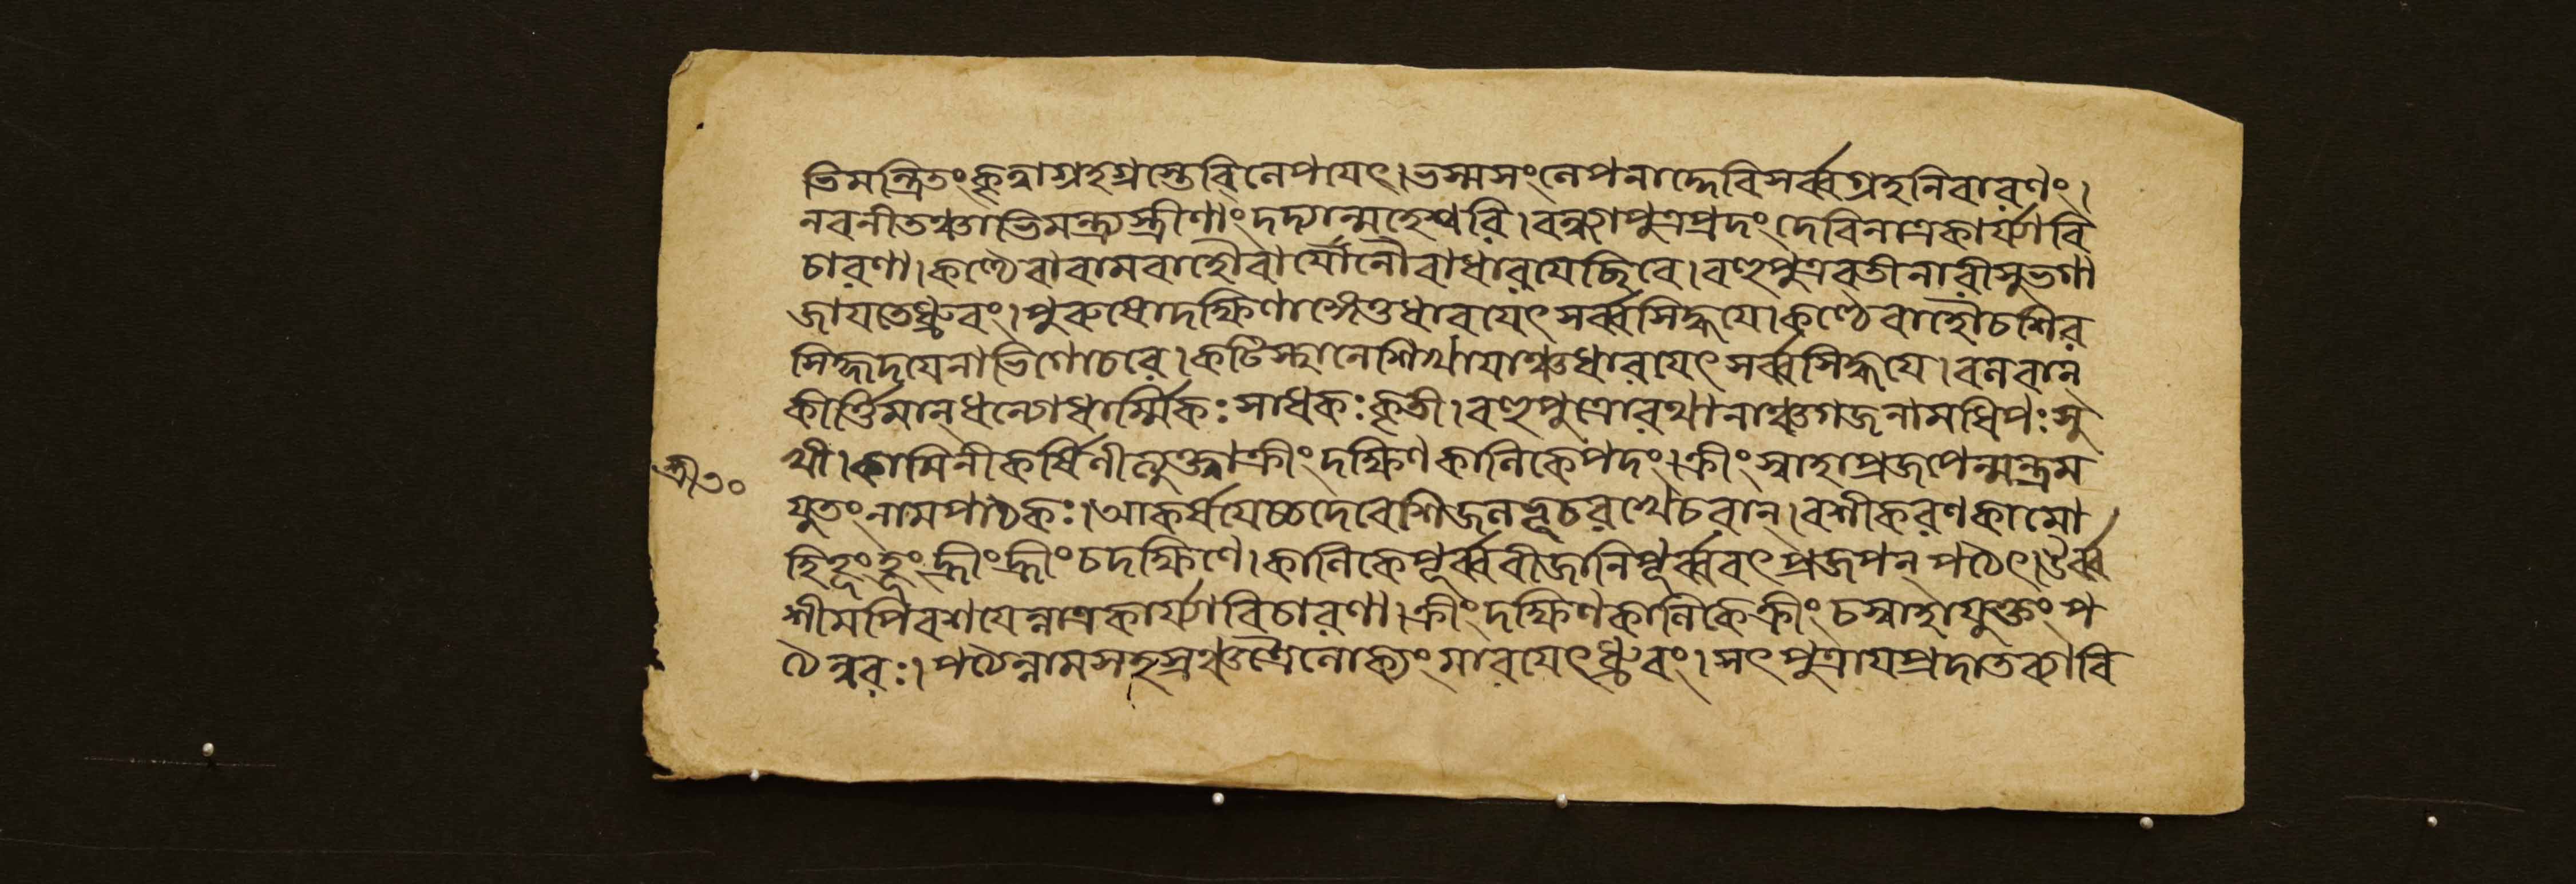 ভিমন্ত্রিতং কৃত্বা গ্রহগ্রস্তে বিলেপয়েৎ। ভস্মসংলেপনাদ্দেবি সর্ব্বগ্রহনিবারণং।
নবনীতঞ্চাভিমন্ত্র্য স্ত্রীণাং দদ্যান্মহেশ্বরি। বন্ধ্যাপুত্রপ্রদং দেবি নাত্র কার্য্যা বি
চারণা। কণ্ঠে বা বামবাহৌ বা যোনৌ বা ধারয়েচ্ছিবে। বহুপুত্রবতী নারী সুভগা
জায়তে ধ্রুবং। পুরুষো দক্ষিণাঙ্গে তু ধারয়েৎ সর্ব্বসিদ্ধয়ে। কণ্ঠে বাহৌ চ শির
সি হৃদয়ে নাভিগোচরে। কটিস্থানে শিখায়াঞ্চ ধারয়েৎ সর্ব্বসিদ্ধয়ে। বলবান্
কীর্ত্তিমান্ ধন্যো ধার্ম্মিকঃ সাধকঃ কৃতী। বহুপুত্রো রথানাঞ্চ গজানামধিপঃ সু
খী। কামিনীকর্ষিণীলুক্ত্বা ক্রীং দক্ষিণকালিকে পদং। ক্রীং স্বাহা প্রজপেন্মন্ত্রম
যুতং নামপাঠকঃ। আকর্ষয়েচ্চ দেবেশি জলভূচরখেচরান্। বশীকরণকামো
হি হূং হূং হ্রীং হ্রীং চ দক্ষিণে। কালিকে পূর্ব্ববীজানি পূর্ব্ববৎ প্রজপন্ পঠেৎ। উর্ব্ব
শীমপি বশয়েন্নাত্র কার্য্যা বিচারণা। ক্রীং দক্ষিণকালিকে ক্রীং চ স্বাহাযুক্তং প
ঠেন্নরঃ। পঠেন্নামসহস্রঞ্চ ত্রৈলোক্যং মারয়েৎ ধ্রুবং। সৎপুত্রায় প্রদাতব্যা বি